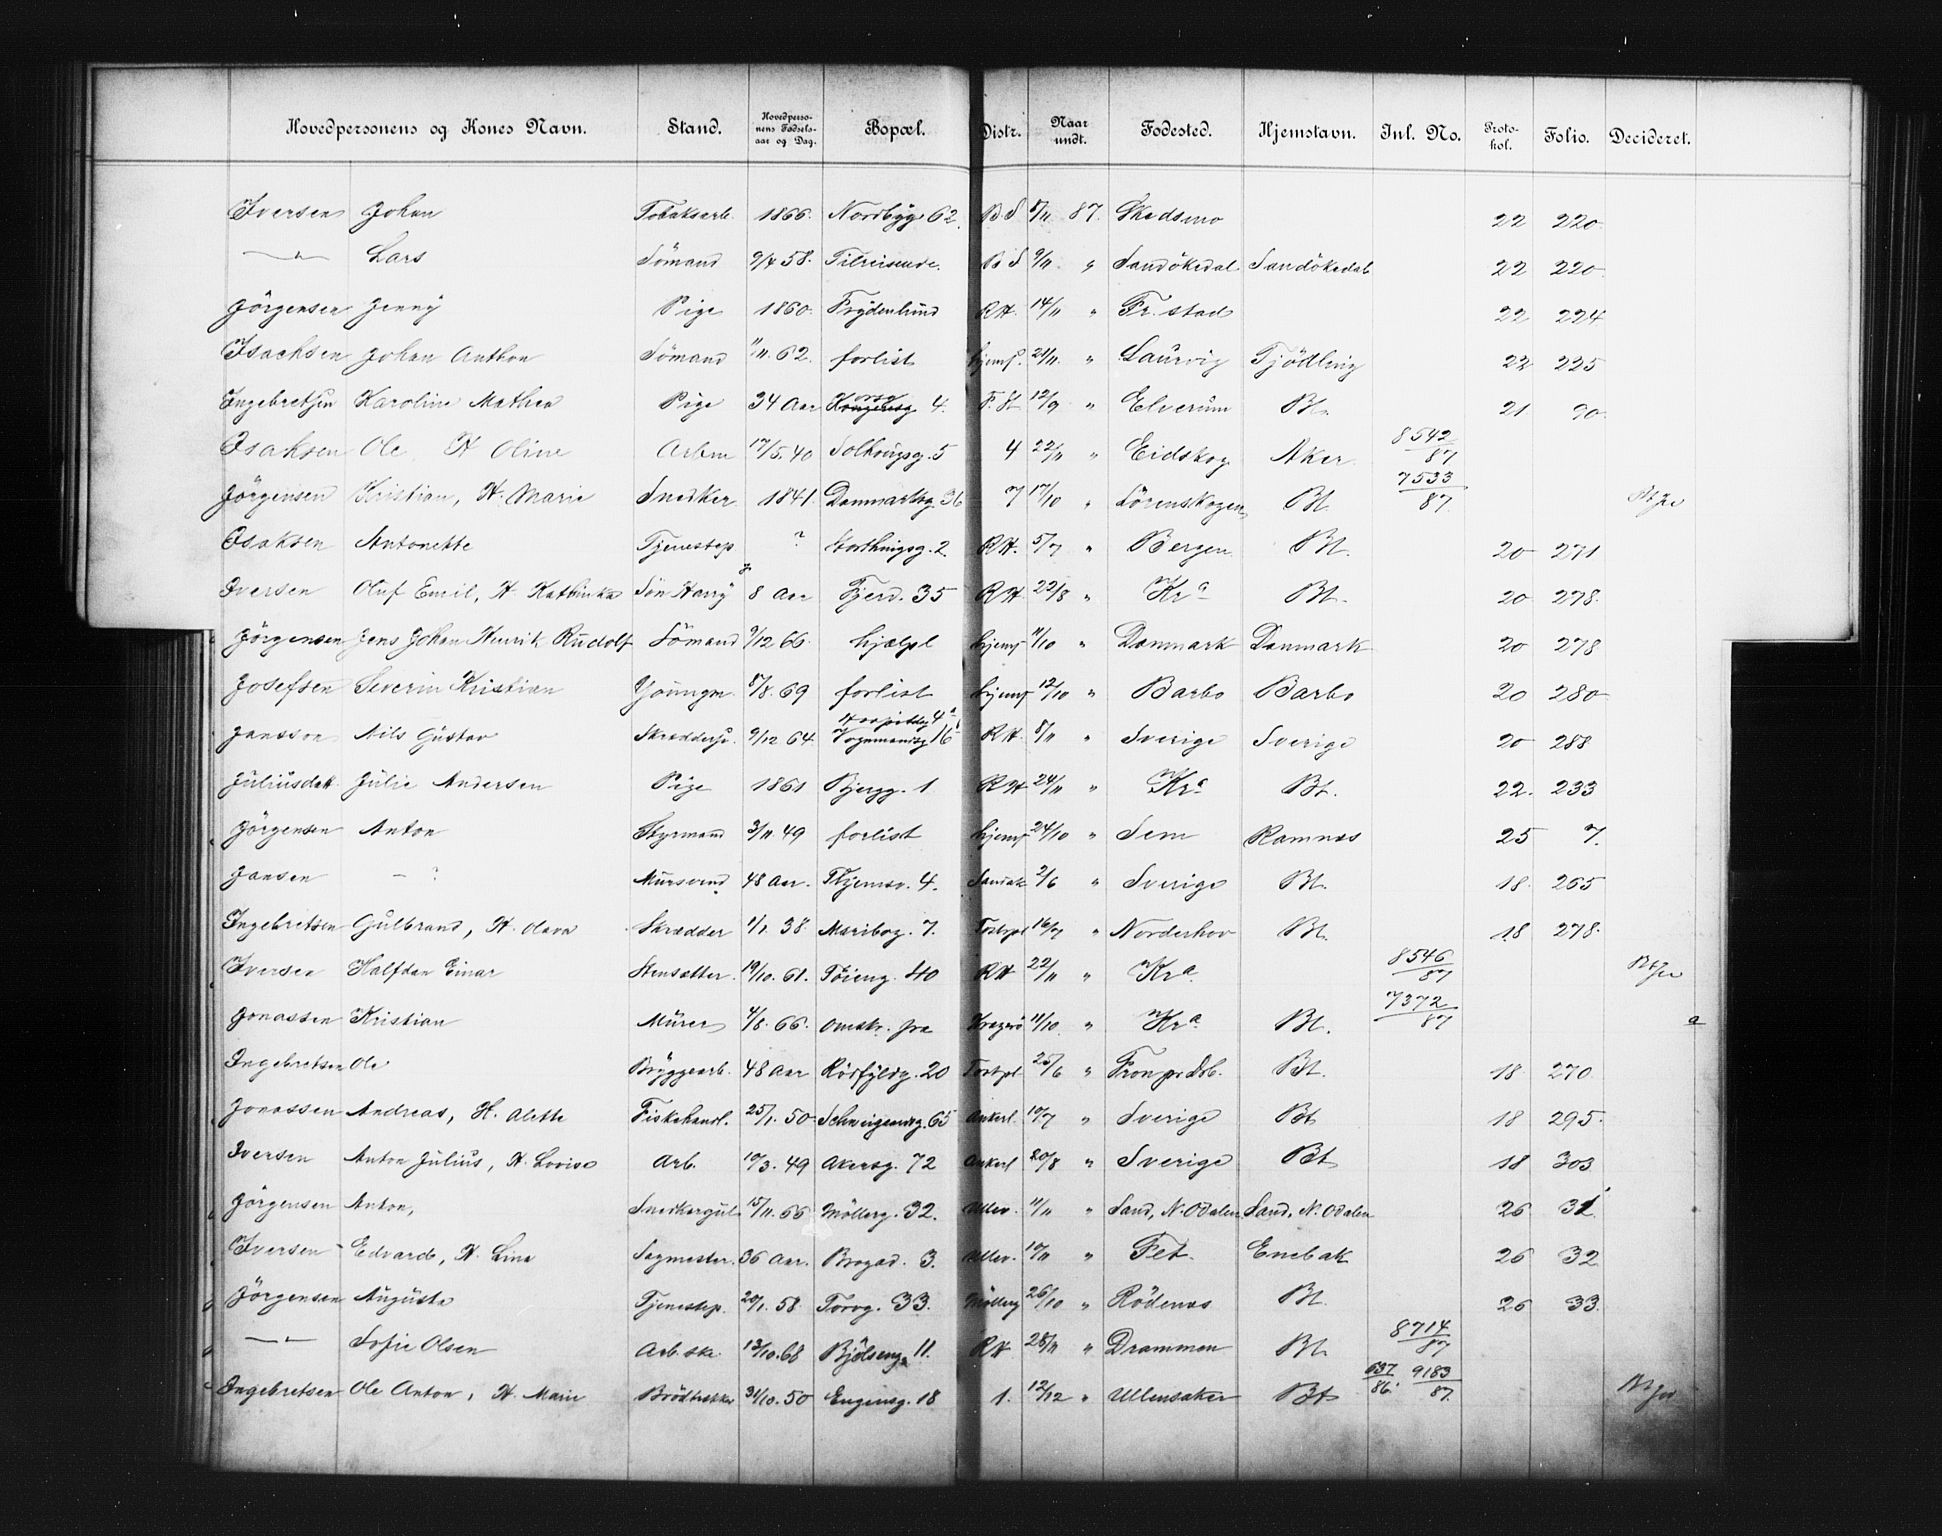 Hovedpersonens og Kones Navn. Stand. Hovedpersonens Fødselsaar og Dag. Bopæl. Distr. Naar undt. Fødested. Hjemstavn. Inl. No. Protokol. Folio. Decideret.
Iversen Johan Tobaksarb. 1866. Nordbyg 62. B S 8/11 87. Skedsmo 22 220
—"— Lars Sömand 9/4 58. Tilreisende. B S 9/11 " Sandökedal Sandökedal 22 220
Jörgensen Jenny Pige 1860. Frydenlund RH. 14/11 " Fr. stad 22 224
Isachsen Johan Anthon Sömand 1/11. 62. forlist hjemf. 21/11. " Laurvig Tjödling 22 225
Ingebretsen Karoline Mathea Pige 34 Aar Korsg 4. F. St 12/9 " Elverum Bt. 21 90.
Isaksen Ole H Oline Arbm 17/5. 40 Solhougsg. 5 4 22/11 " Eidskog Aker 8542/87
Jörgensen Kristian, H. Marie Snedker 1841. Danmarksg 36 7 17/10 " Sörenskogen Bt. 7533/87.
Isaksen Antonette Tjenestep ? Storthingsg. 2. RH. 5/7 " Bergen Bt. 20 271
Iversen Oluf Emil, H. Kathinka Sön Harry 8 Aar Fjerd. 35 RH. 22/8 " Kra Bt. 20 278.
Jörgensen Jens Johan Henrik Rudolf Sömand 9/12 66. hjælpl hjemf 11/10 " Danmark Danmark 20 278
Josefsen Severin Kristian Youngm. 8/8. 69 forlist hjemf 12/10 " Barbo Barbo 20 280
Jansson Nils Gustav Skræddersv. 9/12 64. Vognmandsg 16 RH. 8/11 " Sverige Sverige 20 288
Juliusdatt. Julie Andersen Pige 1861 Bjergg. 1 RH 24/11 " Kra Bt. 22. 233
Jörgensen Anton Styrmand 3/11 49 forlist hjemf 24/10 " Sem Ramnæs 25 7.
Jansen — ? Mursvend 48 Aar. Thjemsv. 4. Sandak 2/6 " Sverige Bt. 18. 265
Ingebretsen Gulbrand, H. Olava Skrædder 1/1. 38. Maribog. 7. Tostrpl 16/7 " Norderhov Bt. 18 278.
Iversen Halfdan Einar Stensætter. 19/10. 61. Töieng. 40 RH 22/11 " Kra. 8546/87
Jonassen Kristian Murer 4/8. 66. Omstr. fra Kragerö 11/10 " Kra. Bt. 7372/87 a
Ingebretsen Ole Bryggearb. 48 Aar Rödfyldg. 20 Tostpl 25/6 " Fron Bt. 18 270
Jonassen Andreas, H. Alette Fiskehandl. 25/1. 50. Schweigaardsg. 65 Ankerl. 10/7 " Sverige Bt 18 295.
Iversen Anton Julius, H. Lovise Arb. 10/3. 49 Akersg. 72 Ankerl 20/8 " Sverige Bt 18 303
Jörgensen Anton, Snedkergut 15/11. 66 Möllerg. 32. Ullev. 11/11 " Sand, N. Odalen Sand, N. Odalen 26 31
Iversen Edvard, H. Lina Sagmester. 36 Aar. Brogad. 3. Ullev. 10/11 " Fet. Enebak 26 32
Jörgensen Augusta Tjenestep. 20/1. 58 Torvg. 33. Möllerg 26/10 " Rödenæs Bt. 26 33.
—"— Sofie Olsen Arb. ske 13/10. 68 Bjölseng. 11. RH 28/11 " Drammen Bt. 8714/87
Ingebretsen Ole Anton, H. Marie Brödtrækker 31/10. 50 Engensg. 18 1. 12/12 " Ullensaker Bt 637/86. 9183/87.